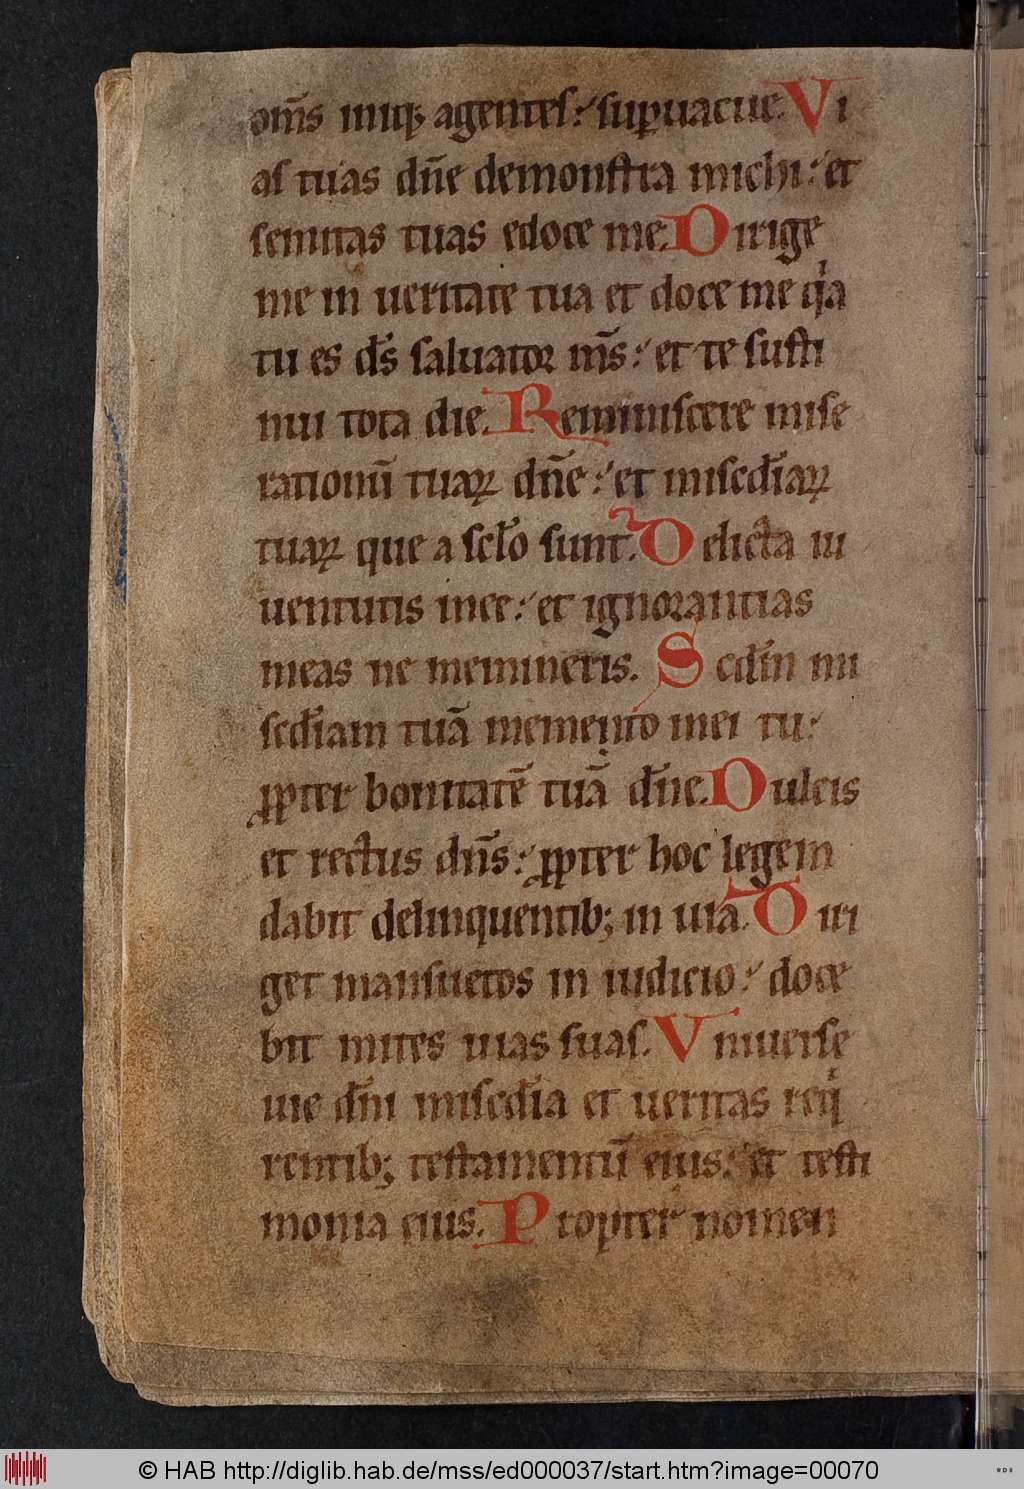 om̅s iniq; agentes: supuacue. Vi
as tuas dn̅e demonstra michi: et
semitas tuas edoce me. Dirige
me in ueritate tua et doce me qͥa
tu es ds̅ saluator ms̅: et te susti
nui tota die. Reminiscere mise
rationu̅ tuaꝝ dn̅e: et misedi̅aꝝ
tuaꝝ que a sclo̅ sunt. Delicta iu
uentutis mee: et ignorantias
meas ne memineris. Scdm̅ mi
sedi̅am tua̅ memento mei tu:
ꝓpter bonitate̅ tua̅ dn̅e. Dulcis
et rectus dn̅s: ꝓpter hoc legem
dabit delinquentib; in uia̅. Diri
get mansuetos in iudicio: doce
bit mites uias suas. Vniuerse
uie dn̅i misedi̅a et ueritas reqͥ
rentib; testamentu̅ eius: et testi
monia eius. Propter nomen
© HAB http://diglib.hab.de/mss/ed000037/start.htm?image=00070